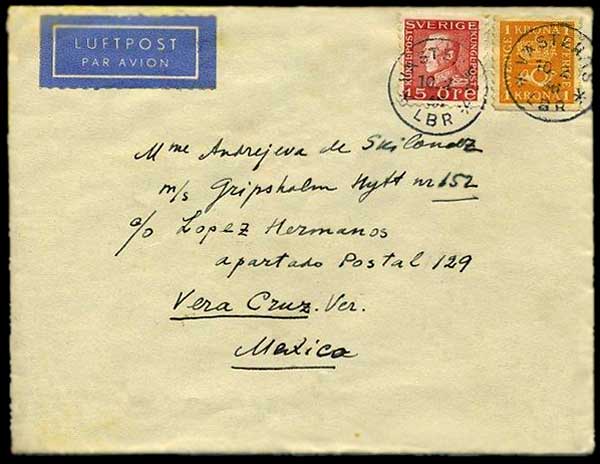 LUFTPOST
PAR AVION
SVERIGE
15 ÖRE
1 KRONA 1
SVERIGE
1 KRONA 1
VÄSTERÅS
LBR
Mme Andrejeva de
m/s Gripsholm Hytt nr 152
c/o Lopez Hermanos
apartado Postal 129
Vera Cruz. Ver.
Mexico